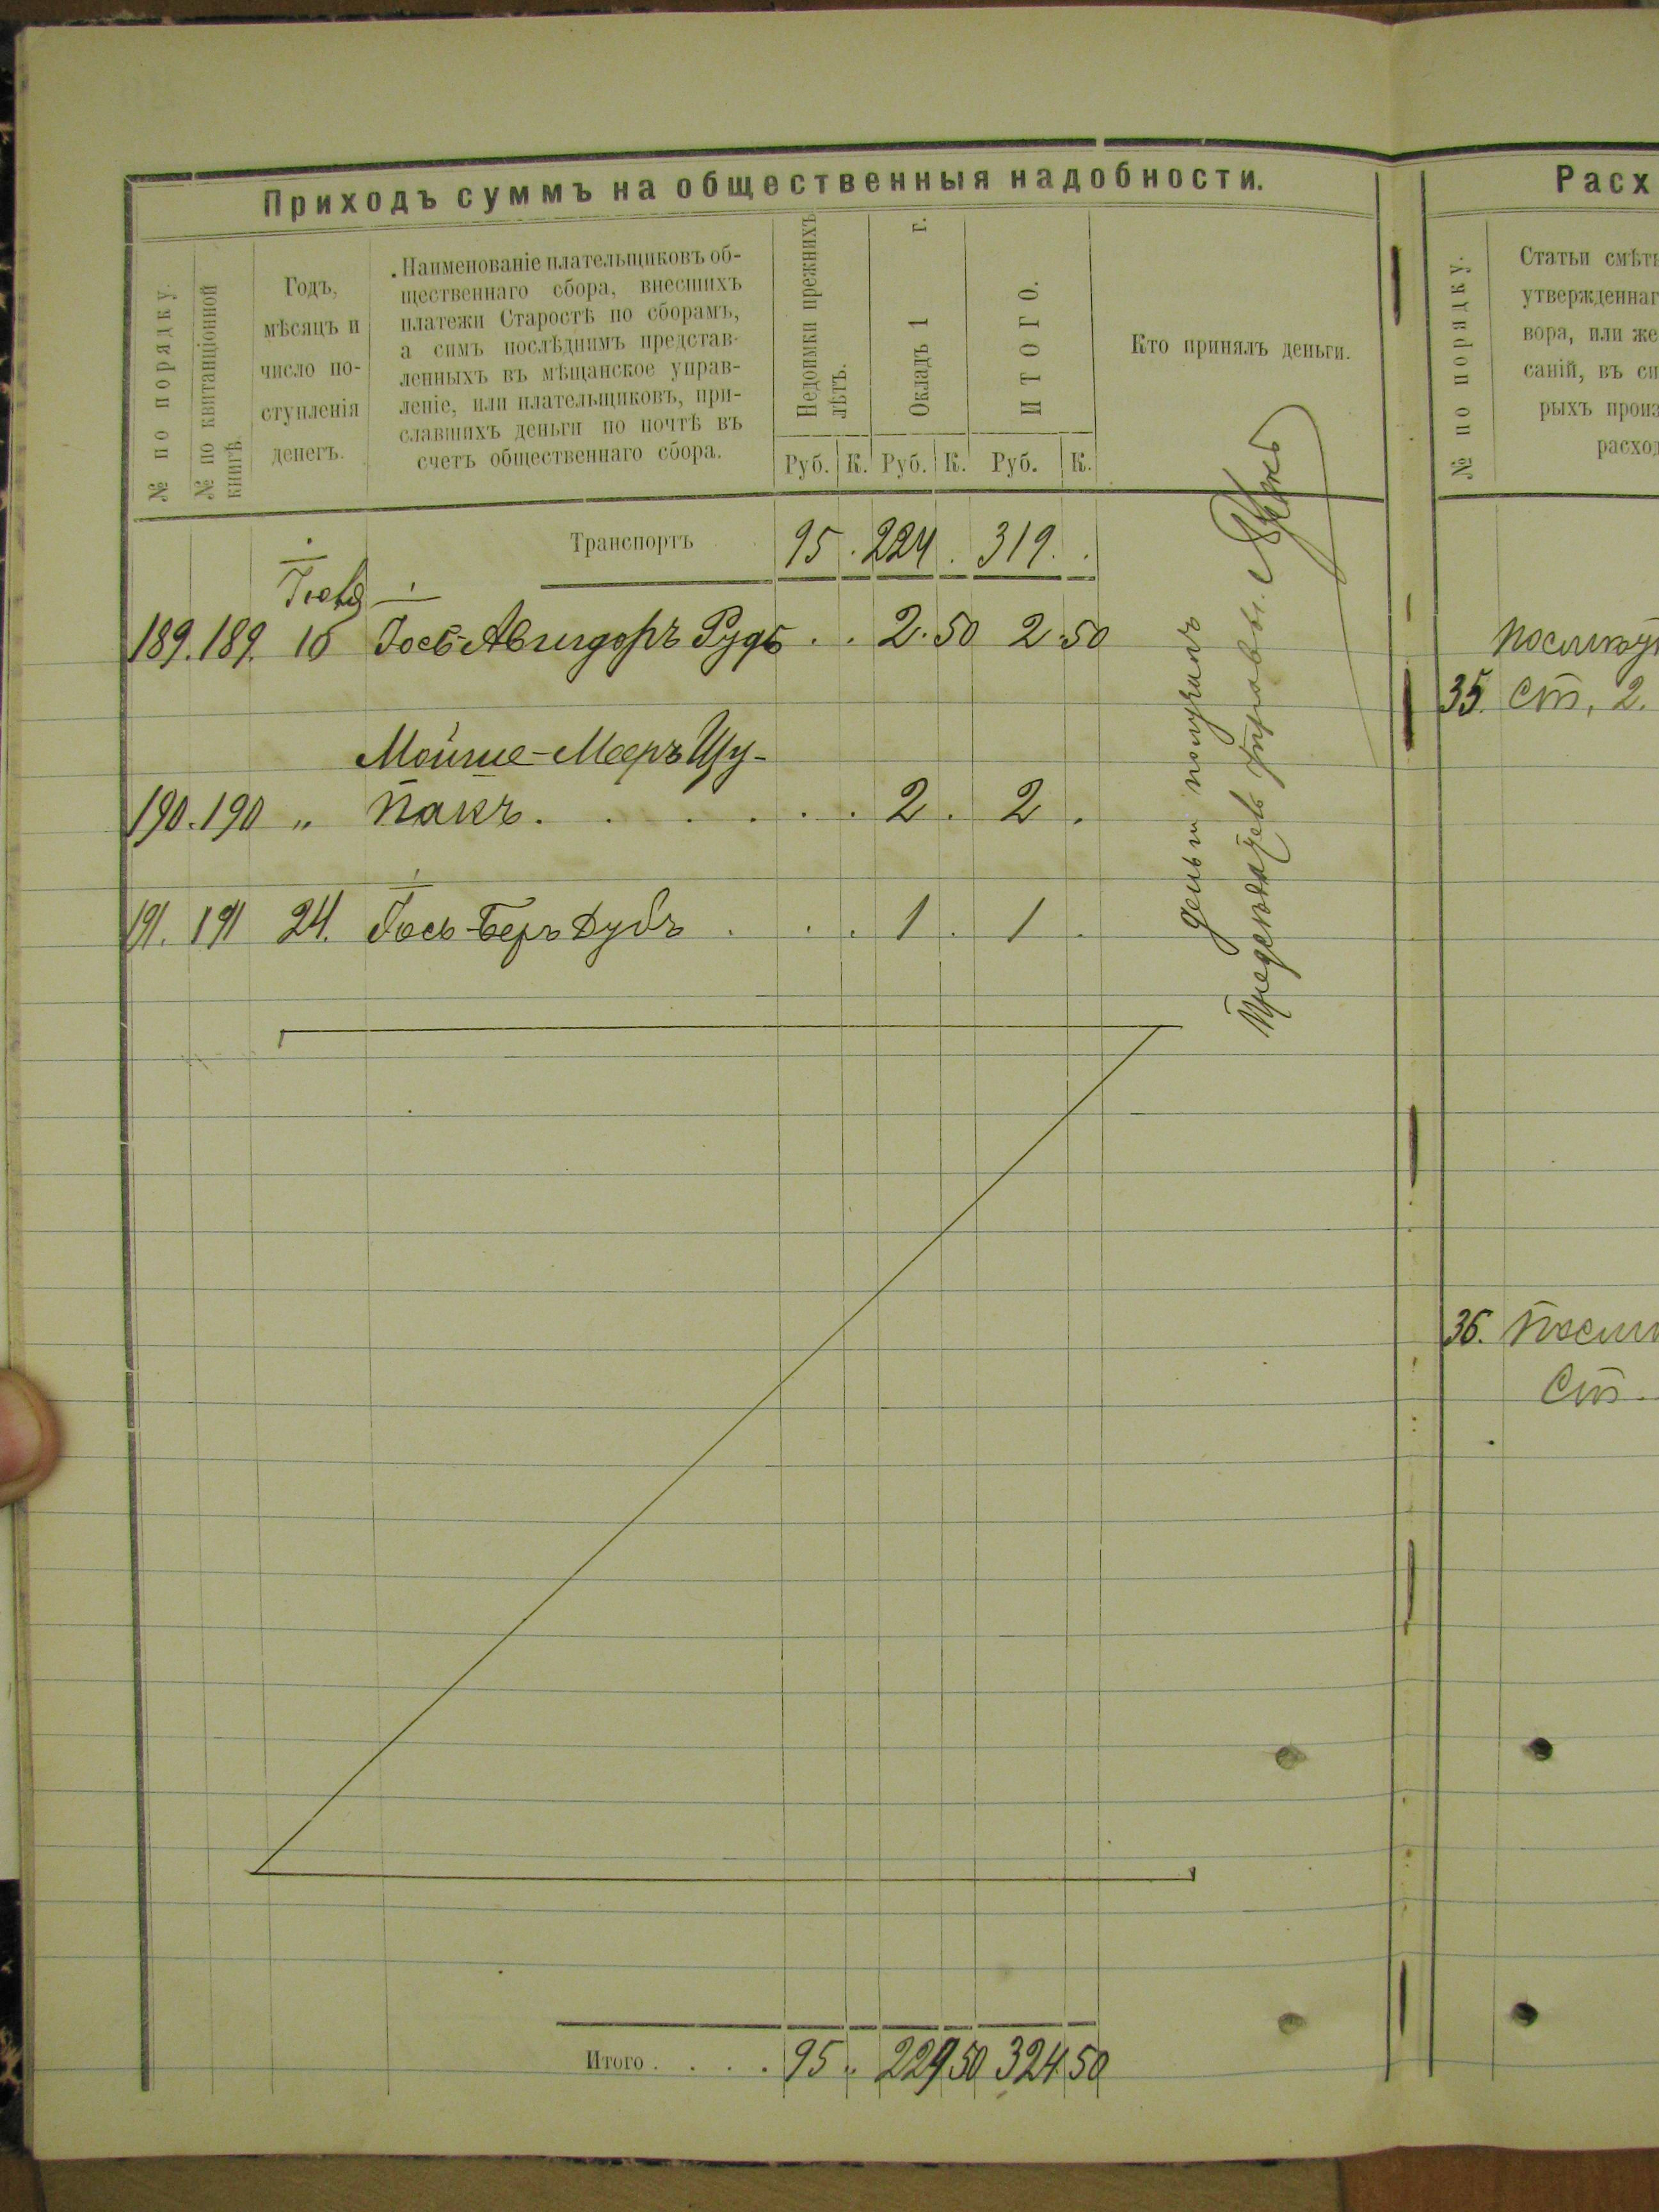 Приходъ суммъ на общественныя надобности.
№ по порядку.
№ по квитанціонной
книгѣ.
Годъ,
мѣсяцъ и
число по-
ступленія
денегъ.
Наименованіе плательщиковъ об-
щественнаго сбора, внесшихъ
платежи Старостѣ по сборамъ,
а симъ послѣднимъ представ-
ленныхъ въ мѣщанское управ-
леніе, или плательщиковъ, при-
славшихъ деньги по почтѣ въ
счетъ общественнаго сбора.
Недоимки прежнихъ
лѣтъ.
Окладъ 1 г.
ИТОГО.
Руб. К. Руб. К. Руб. К.
Кто принялъ деньги.
Транспортъ 95 . 224 . 319 . .
189. 189. 16 Іось-Авигдоръ Рудъ . . 2. 50 2. 50
Мойше-Мееръ Щу-
190. 190 „ пакъ . . . . . . . 2 . 2 .
191. 191 24. Іось-Беръ Дубъ . . . 1 . 1 .
Деньги получилъ
Предсѣдатель Управы
Итого . . . . 95 „ 229 50 324 50
Расх
№ по порядку.
Статьи смѣт
утвержденнаг
вора, или же
саній, въ си
рыхъ произ
расход
35. ст. 2.
36.
Ст.